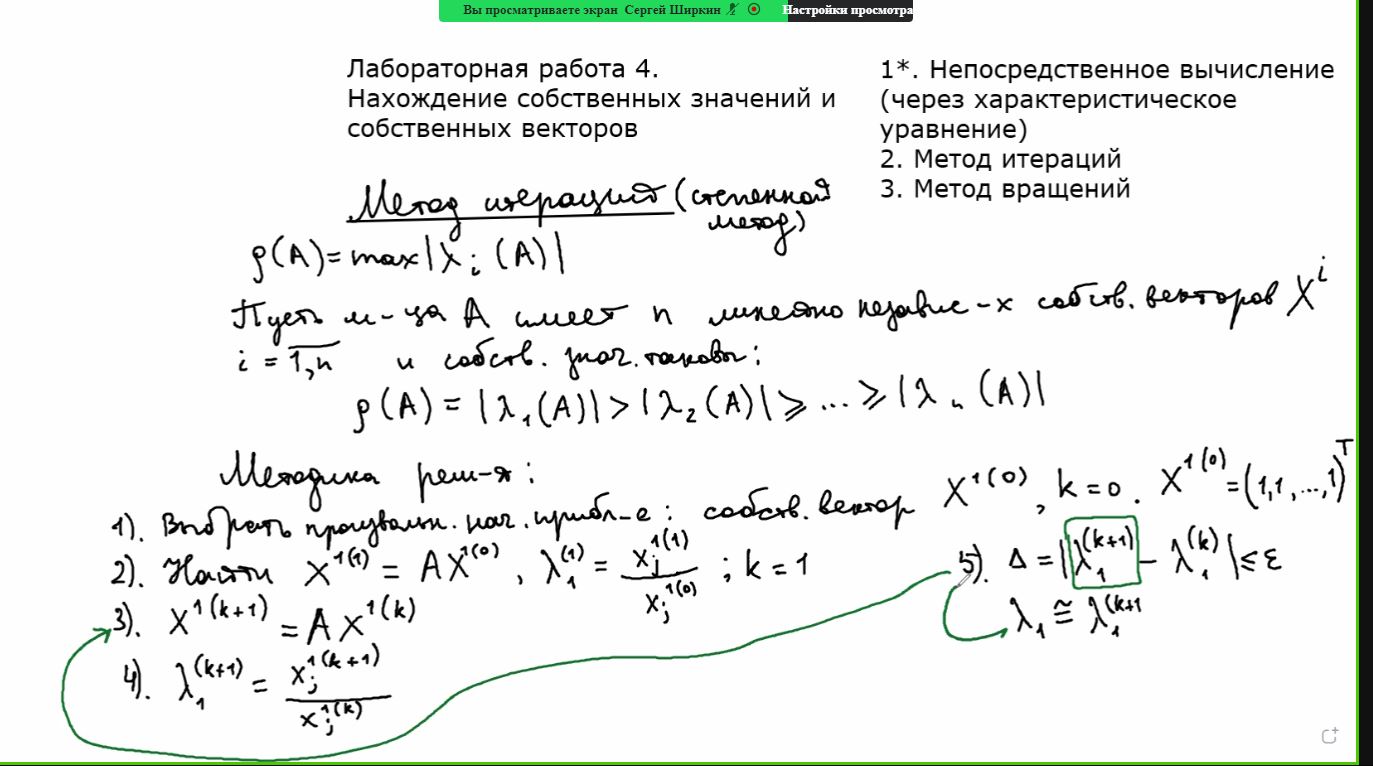 Вы просматриваете экран Сергей Ширкин
Настройки просмотра
Лабораторная работа 4.
Нахождение собственных значений и
собственных векторов
1*. Непосредственное вычисление
(через характеристическое
уравнение)
2. Метод итераций
3. Метод вращений
Метод итераций (степенной
метод)
ρ(A) = max|λᵢ (A)|
Пусть м-ца A имеет n линейно независ-х собств. векторов Xⁱ
i = 1,n и собств. знач. таковы:
ρ(A) = |λ₁(A)| > |λ₂(A)| ⩾ ... ⩾ |λₙ(A)|
Методика реш-я:
1). Выбрать произвольн. нач. прибл-е: собств. вектор X^1(0), k=0. X^1(0) = (1,1,...,1)^T
2). Найти X^1(1) = AX^1(0), λ₁^(1) = x_j^1(1) / x_j^1(0) ; k=1
3). X^1(k+1) = AX^1(k)
4). λ₁^(k+1) = x_j^1(k+1) / x_j^1(k)
5). Δ = |λ₁^(k+1) − λ₁^(k)| ⩽ ε
λ₁ ≅ λ₁^(k+1